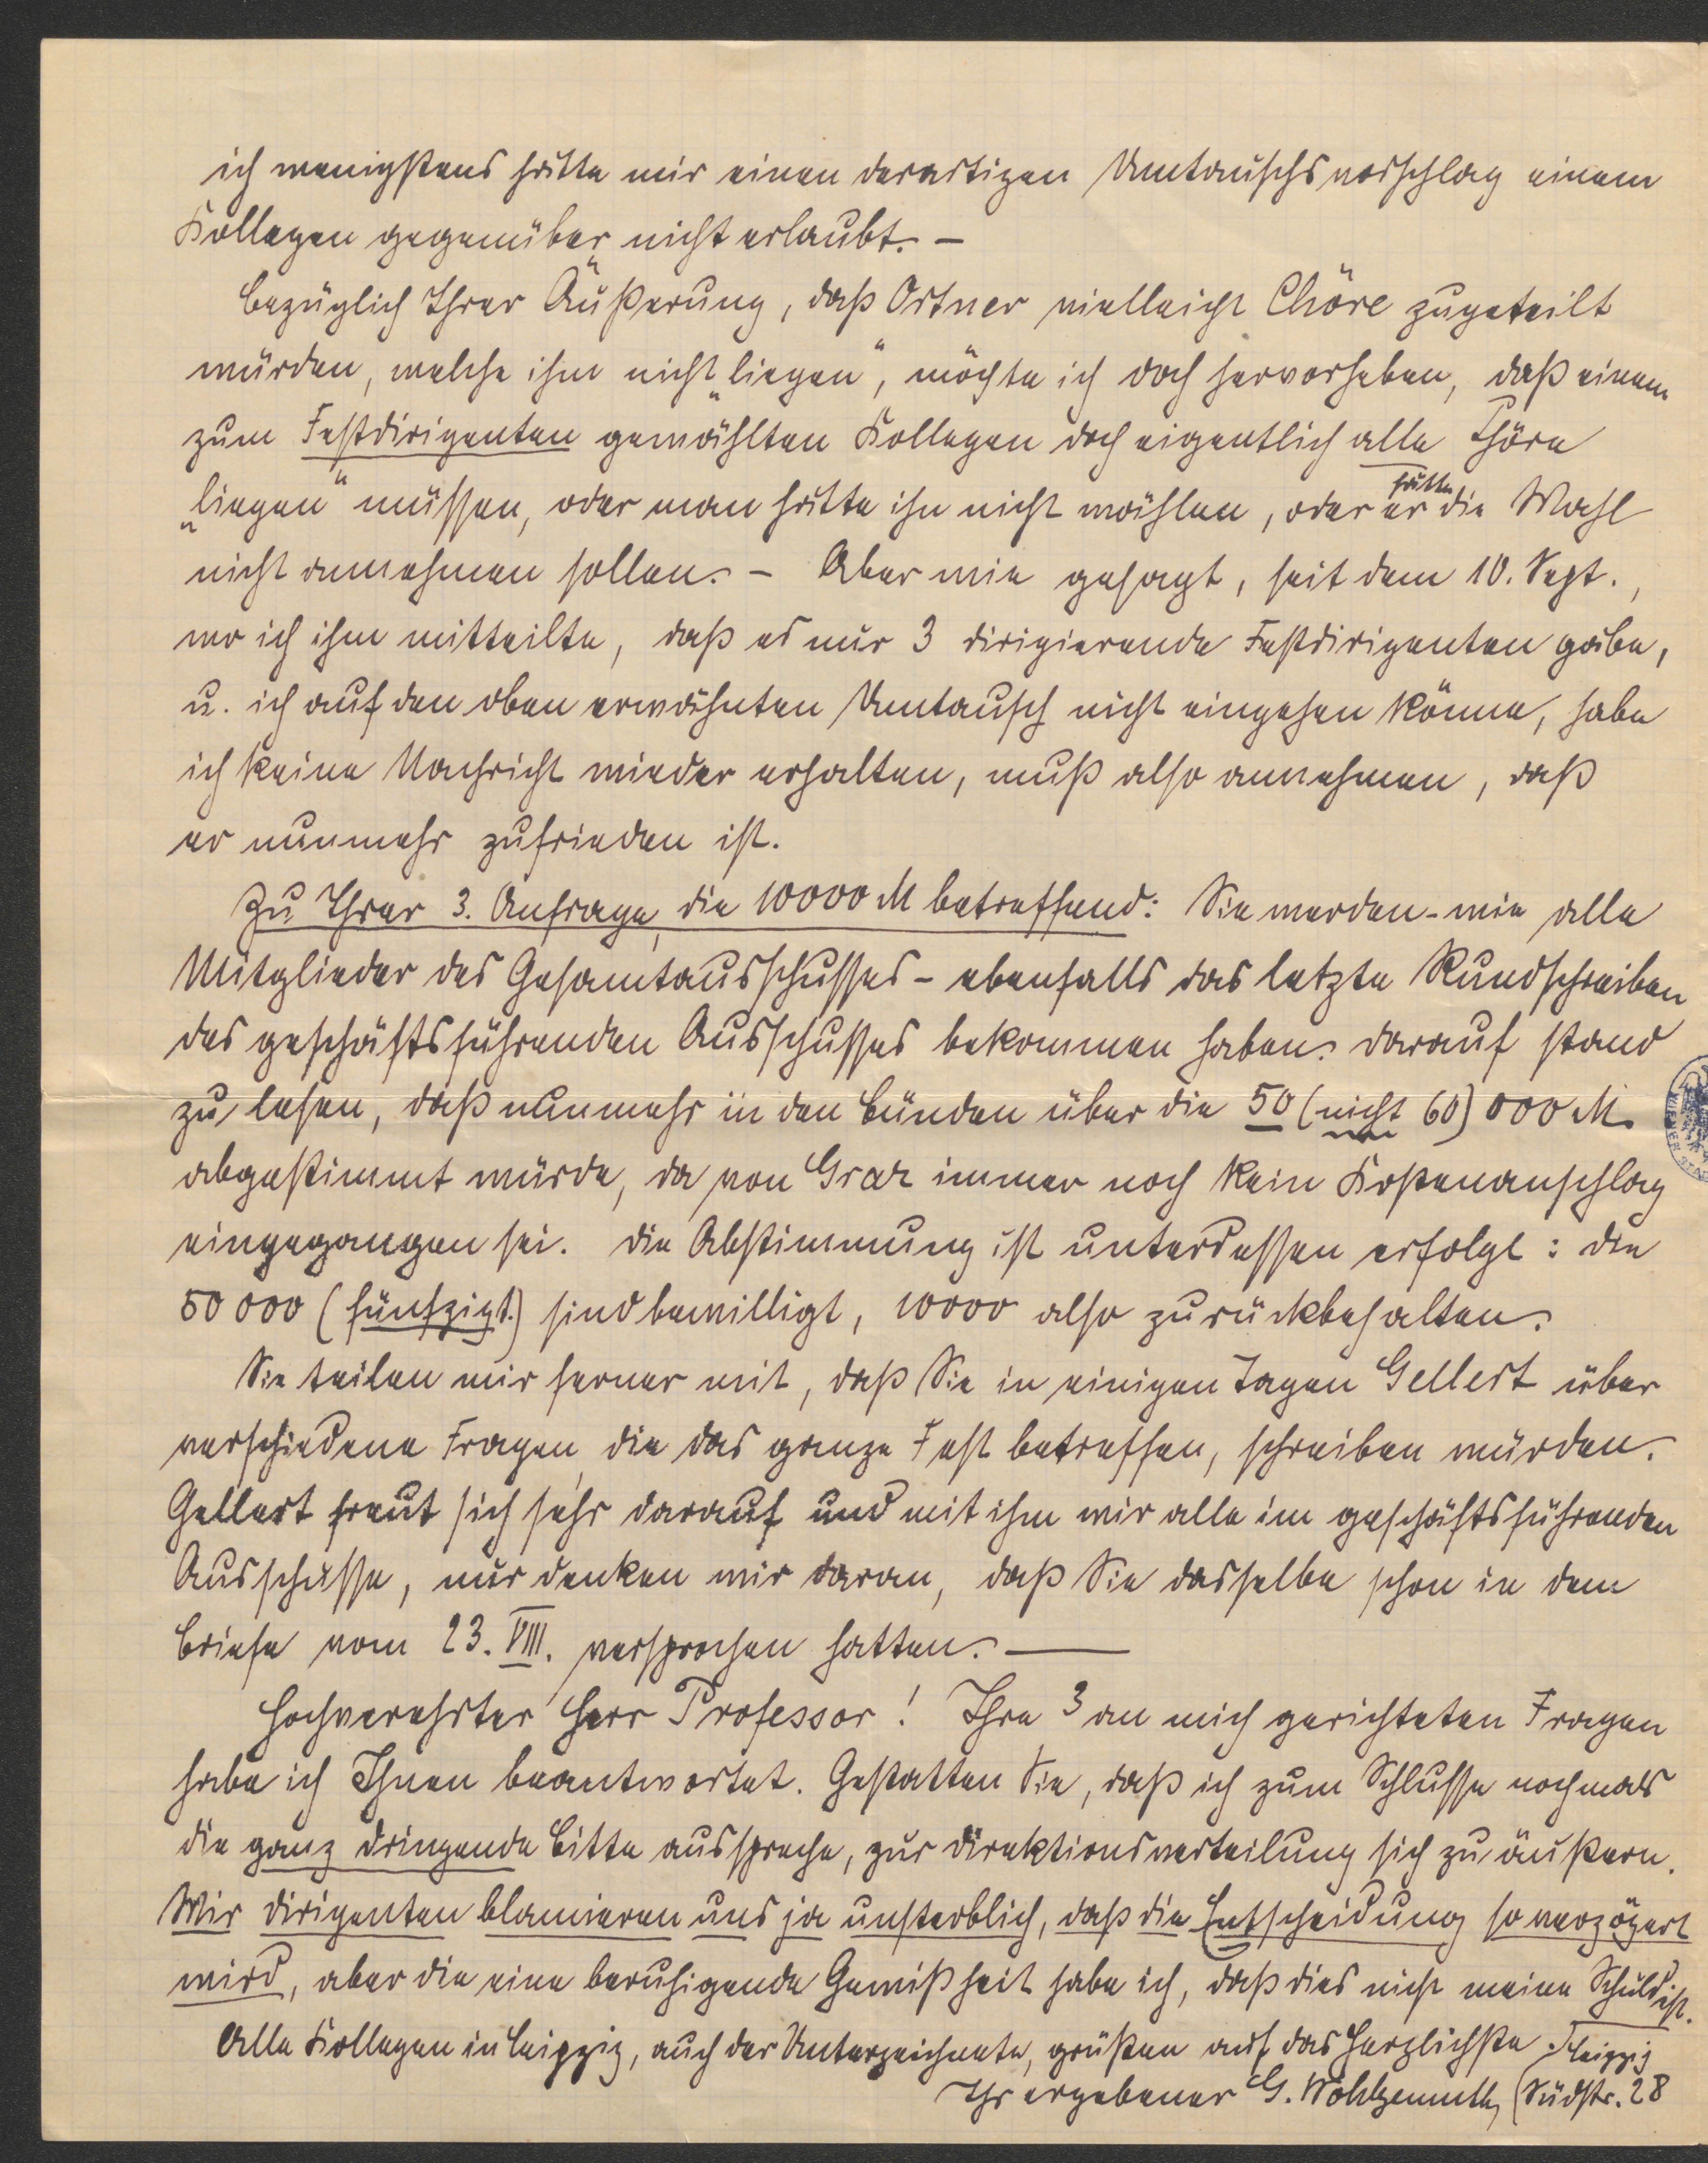 ich wenigstens hätte mir einen derartigen Umtauschsvorschlag einem
Kollegen gegenüber nicht erlaubt. –
Bezüglich Ihrer Äußerung, daß Ortner vielleicht Chöre zugeteilt
würden, welche ihm nicht „liegen“, möchte ich doch hervorheben, daß einem
zum Festdirigenten gewählten Kollegen doch eigentlich alle Chöre
„liegen“ müssen, oder man hätte ihn nicht wählen, oder er hätte die Wahl
nicht annehmen sollen. – Aber wie gesagt, seit dem 10. Sept.,
wo ich ihm mitteilte, daß es nur 3 dirigierende Festdirigenten gäbe,
u. ich auf den oben erwähnten Umtausch nicht eingehen könne, habe
ich keine Nachricht wieder erhalten, muß also annehmen, daß
er nunmehr zufrieden ist.
Zu Ihrer 3. Anfrage, die 10000 M betreffend: Sie werden – wie alle
Mitglieder des Gesamtausschusses – ebenfalls das letzte Rundschreiben
des geschäftsführenden Ausschusses bekommen haben. Darauf stand
zu lesen, daß nunmehr in den Bünden über die 50 (nicht 60) 000 M.
abgestimmt würde, da von Graz immer noch kein Kostenanschlag
eingegangen sei. Die Abstimmung ist unterdessen erfolgt: die
50 000 (fünfzigt.) sind bewilligt, 10000 also zurückbehalten.
Sie teilen mir ferner mit, daß Sie in einigen Tagen Gellert über
verschiedene Fragen, die das ganze Fest betreffen, schreiben würden.
Gellert freut sich sehr darauf und mit ihm wir alle im geschäftsführenden
Ausschusse, nur denken wir daran, daß Sie dasselbe schon in dem
Briefe vom 23. VIII. versprochen hatten. —
Hochverehrter Herr Professor! Ihre 3 an mich gerichteten Fragen
habe ich Ihnen beantwortet. Gestatten Sie, daß ich zum Schlusse nochmals
die ganz dringende Bitte ausspreche, zur Direktionsverteilung sich zu äußern.
Wir Dirigenten blamieren uns ja unsterblich, daß die Entscheidung so verzögert
wird, aber die eine beruhigende Gewißheit habe ich, daß dies nicht meine Schuld ist.
Alle Kollegen in Leipzig, auch der Unterzeichnete, grüßen auf das Herzlichste.
Ihr ergebener G. Wohlgemuth, (Leipzig
Südstr. 28